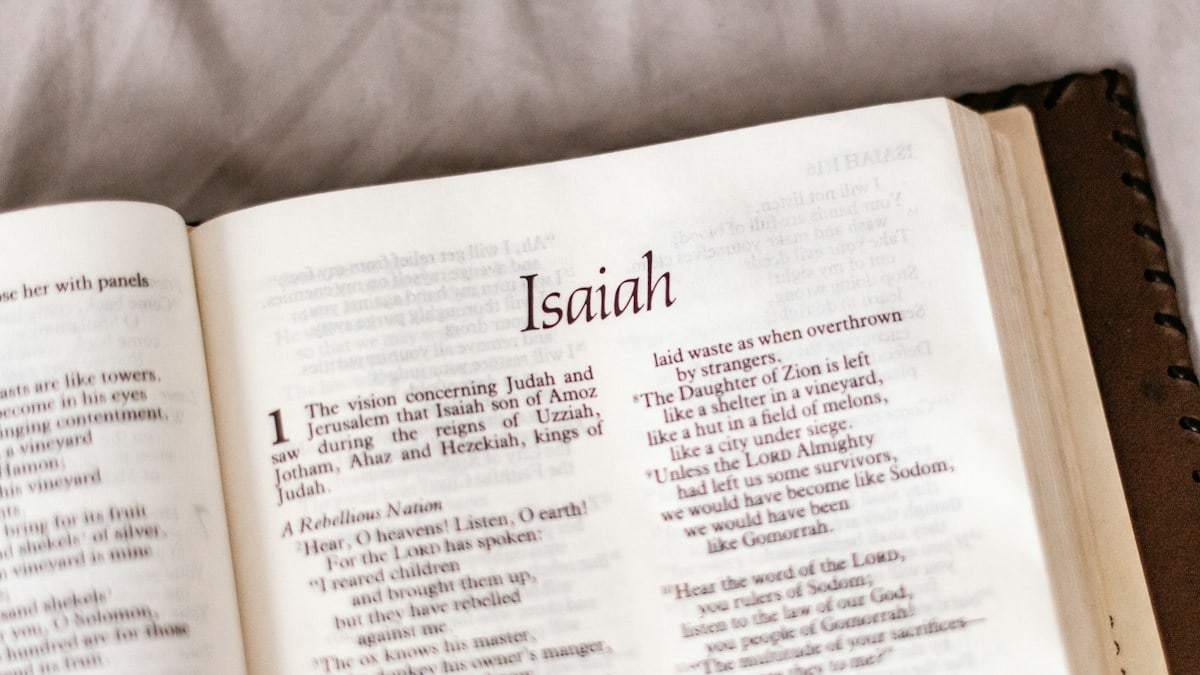 ose her with panels
asts are like towers.
become in his eyes
nging contentment.
a vineyard
Hamon;
his vineyard
nts.
bring for its fruit
d shekels' of silver.
vineyard is mine
sand shekels'
you, O Solomon,
hundred are for those
nd its fruit.
Isaiah
1 The vision concerning Judah and
Jerusalem that Isaiah son of Amoz
saw during the reigns of Uzziah,
Jotham, Ahaz and Hezekiah, kings of
Judah.
A Rebellious Nation
2Hear, O heavens! Listen, O earth!
For the LORD has spoken:
"I reared children
and brought them up,
but they have rebelled
against me.
3The ox knows his master,
donkey his owner's manger,
laid waste as when overthrown
by strangers.
8The Daughter of Zion is left
like a shelter in a vineyard,
like a hut in a field of melons,
like a city under siege.
9Unless the LORD Almighty
had left us some survivors,
we would have become like Sodom,
we would have been
like Gomorrah.
10Hear the word of the LORD,
you rulers of Sodom;
listen to the law of our God,
you people of Gomorrah!
11"The multitude of your sacrifices—
they to me?"